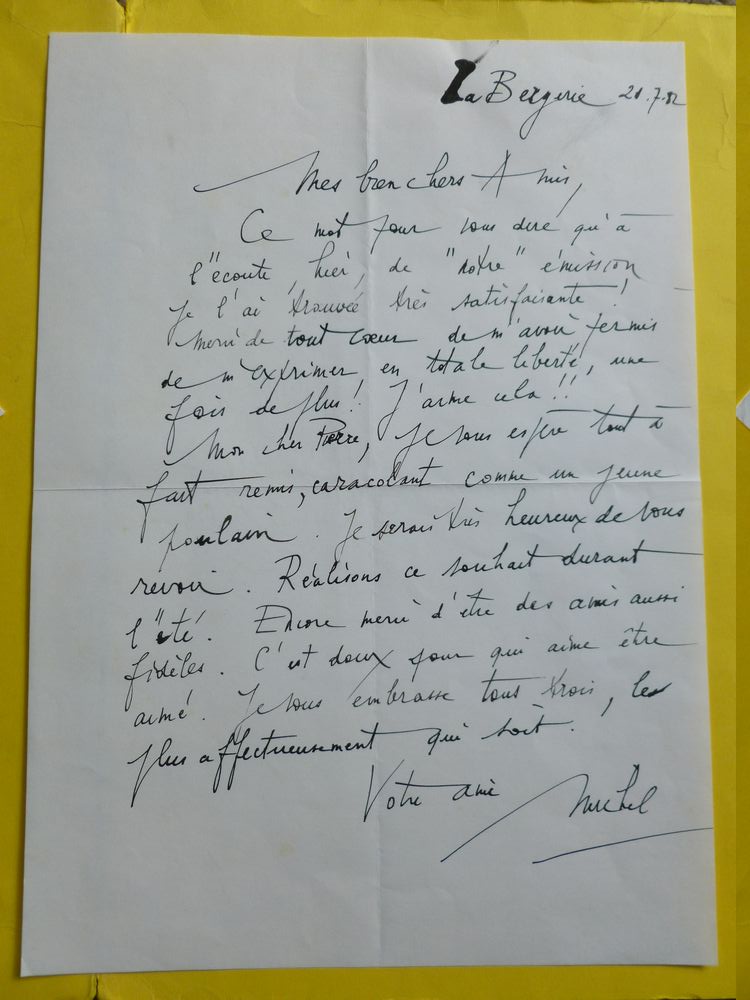 La Bergerie 21.7.82
Mes bien chers Amis,
Ce mot pour vous dire qu'à
l'écoute, hier, de "notre" émission
je l'ai trouvée très satisfaisante !
Merci de tout cœur de m'avoir permis
de m'exprimer, en totale liberté, une
fois de plus ! J'aime cela !!
Mon cher Pierre, je vous espère tout à
fait remis, caracolant comme un jeune
poulain. Je serais très heureux de vous
revoir. Réalisons ce souhait durant
l'été. Encore merci d'être des amis aussi
fidèles. C'est doux pour qui aime être
aimé. Je vous embrasse tous trois, le
plus affectueusement qui soit.
Votre ami Michel